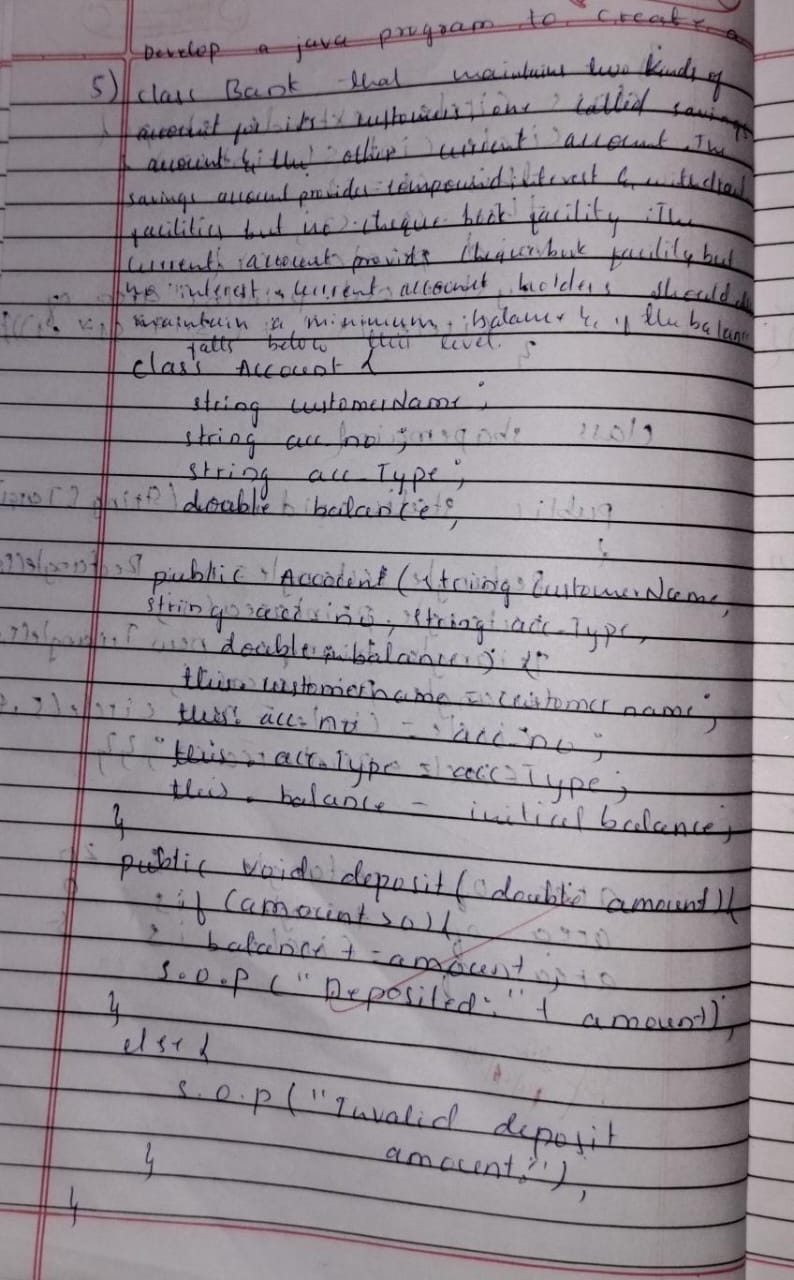 Develop a java program to create a
5) class Bank that maintains two kinds of
account for its customers one called savings
account & the other current account. The
savings account provides compound interest & withdrawal
facilities but no cheque book facility. The
current account provids cheque book facility but
no interest. current account holders should
maintain a minimum balance & if the balance
falls below this level.
class Account {
string customerName;
string acc no;
string acc Type;
double balance;
public Account (string CustomerName,
string acc no, string acc Type,
double balance) {
this. customername = customer name;
this. acc no = acc no;
this. acc Type = acc Type;
this. balance = initical balance;
}
public void deposit ( double amount) {
if (amount > 0) {
balance + = amount;
S.O.P ("Deposited:" + amount);
}
else {
S.O.P ("Invalid deposit
amount.");
}
}